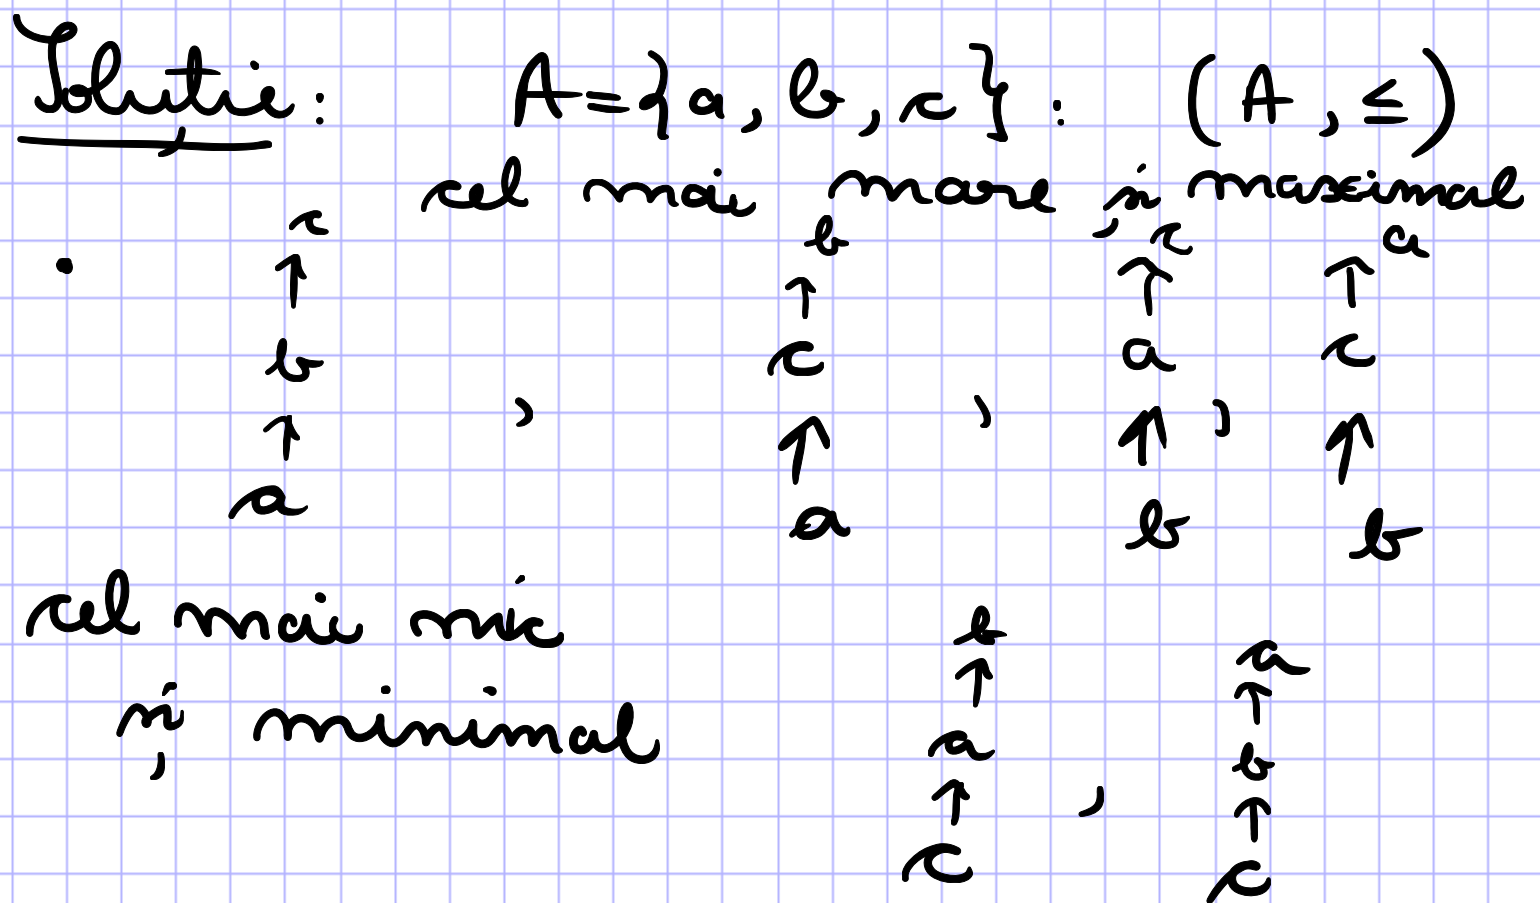 Soluție: A={a, b, c}: (A, ≤)
cel mai mare și maximal
c b c a
↑ ↑ ↑ ↑
b c a c
↑ , ↑ , ↑ , ↑
a a b b
cel mai mic b a
↑ ↑
și minimal a b
↑ , ↑
c c